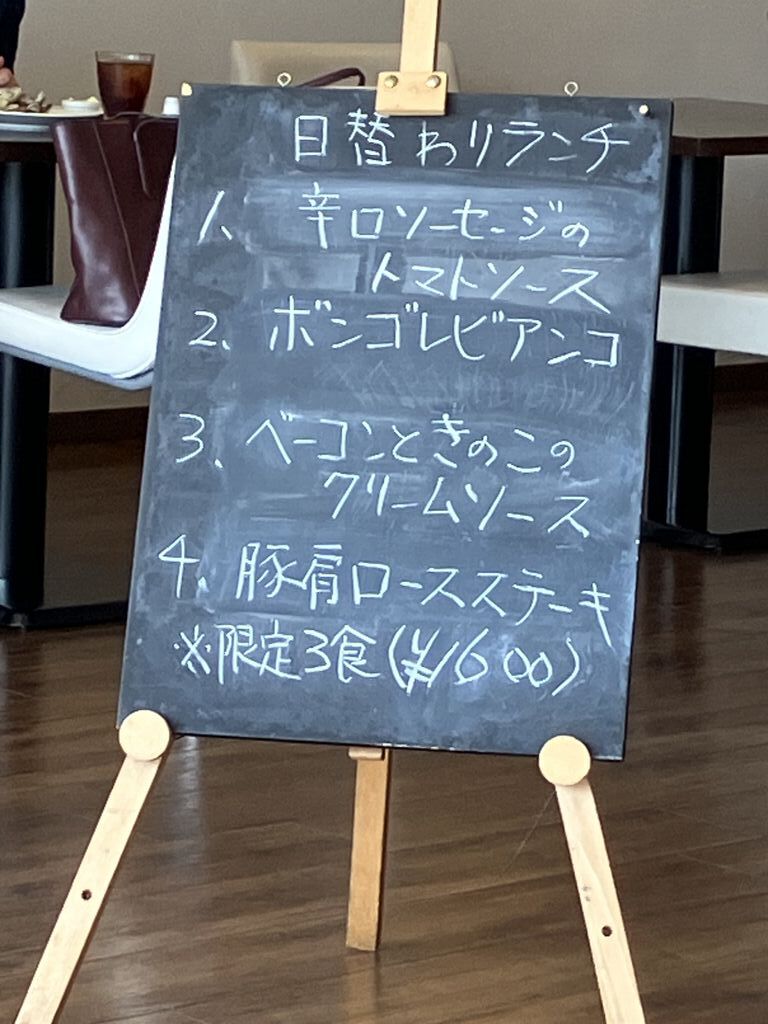 日替わりランチ
1、辛口ソーセージの
トマトソース
2、ボンゴレビアンコ
3、ベーコンときのこの
クリームソース
4、豚肩ロースステーキ
※限定3食(¥1600)